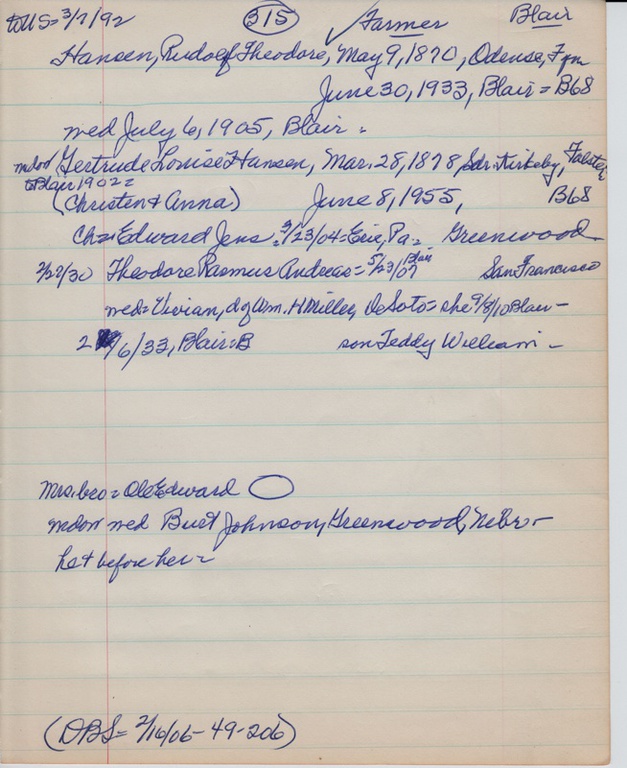 to US = 3/7/92 315 ✓ Farmer Blair
Hansen, Rudolf Theodore, May 9, 1870, Odense, Fyn
June 30, 1933, Blair = B68
med July 6, 1905, Blair =
mdow Gertrude Louise Hansen, Mar. 28, 1878, Sdr. Kirkeby, Falster
to Blair 1902 =
(Christen & Anna) June 8, 1955, B68
Ch = Edward Jens = 3/23/04 = Erie, Pa = Greenwood
2/27/30 Theodore Rasmus Andreas = 5/23/07 Blair San Francisco
med = Vivian, d of Wm. H Miller, DeSoto = she 9/8/10 Blair -
2 /6/33, Blair = B son Teddy William -
Mrs. bro = Ole Edward
mdow med Burt Johnson, Greenwood, Nebr -
he + before her =
(DBS = 2/16/06 - 49 - 206)